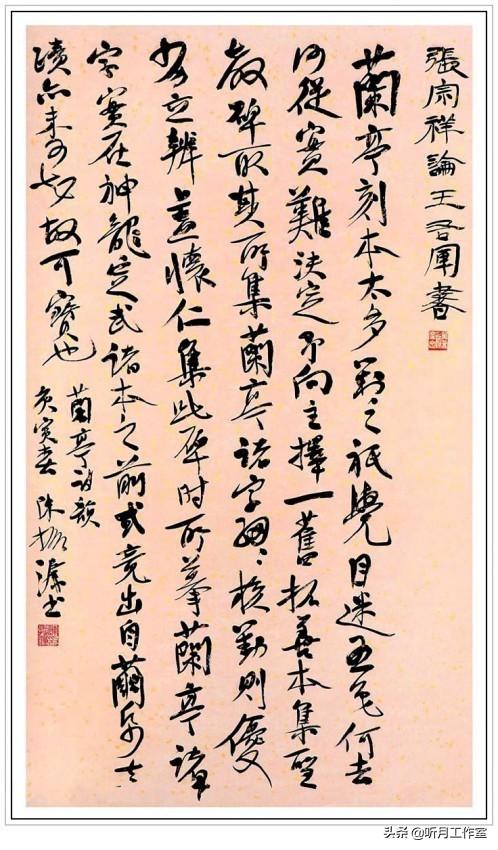 張宗祥論王右軍書
蘭亭刻本太多對之祇覺目迷五色何去
何從實難決定予向主擇一舊拓善本集聖
教碑取其所集蘭亭諸字細〻核勘則優
劣立辨蓋懷仁集此碑時所摹蘭亭諸
字實在神龍定武諸本之前或竟出自繭紙真
蹟亦未可知故可寶也
蘭亭詩韻
庚寅春 陳振濂書
头条 @听月工作室